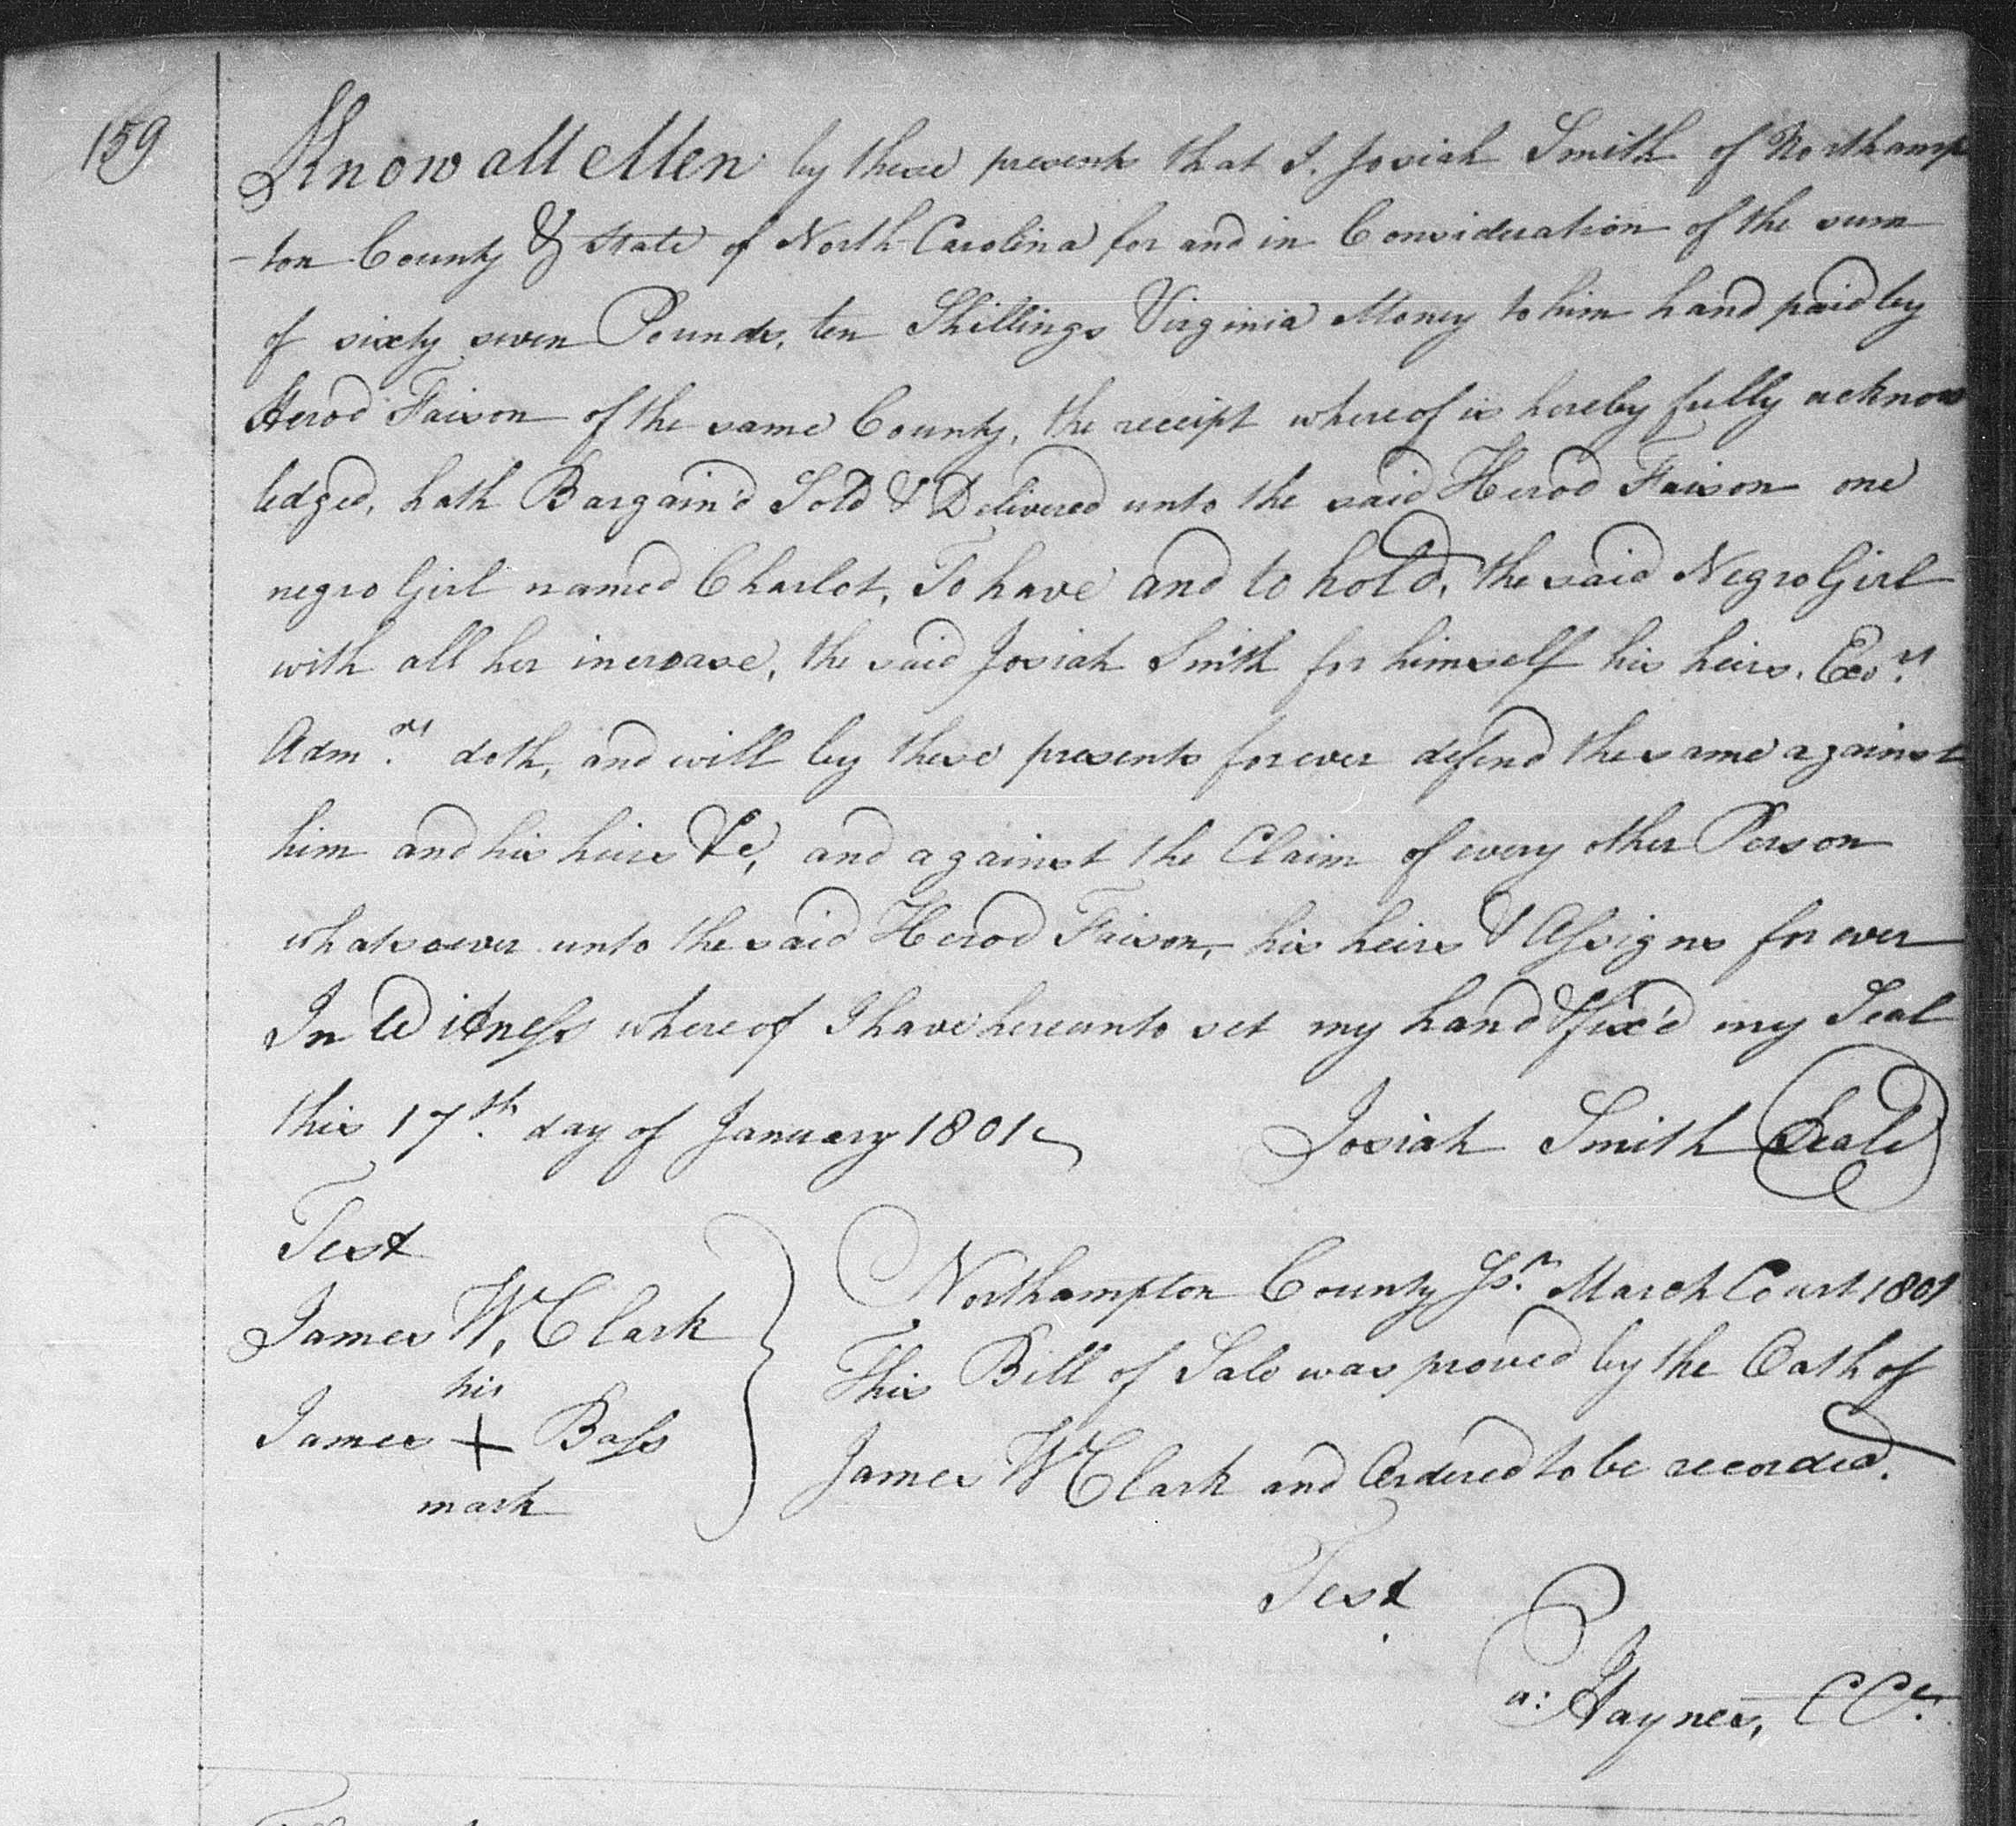 159
Know all Men by these presents that I. Josiah Smith of Northamp
-ton County & State of North Carolina for and in Consideration of the sum
of sixty seven Pounds, ten Shillings Virginia Money to him hand paid by
Herod Faison of the same County, the receipt whereof is hereby fully acknow
ledged, hath Bargain'd Sold & Delivered unto the said Herod Faison one
negro Girl named Charlot, To have and to hold, the said Negro Girl
with all her increase, the said Josiah Smith for himself his heirs. Exo.rs
Adm.rs doth, and will by these presents forever defend the same against
him and his heirs &c, and against the Claim of every other Person
whatsoever unto the said Herod Faison, his heirs & Assigns for ever
In Witness whereof I have hereunto set my hand & fix'd my Seal
this 17th day of January 1801
Josiah Smith Seal
Test
James W. Clark
his
James + Bass
mark
Northampton County Ss. March Court 1801
This Bill of Sale was proved by the Oath of
James W Clark and Ordered to be recorded.
Test
Haynes, CC